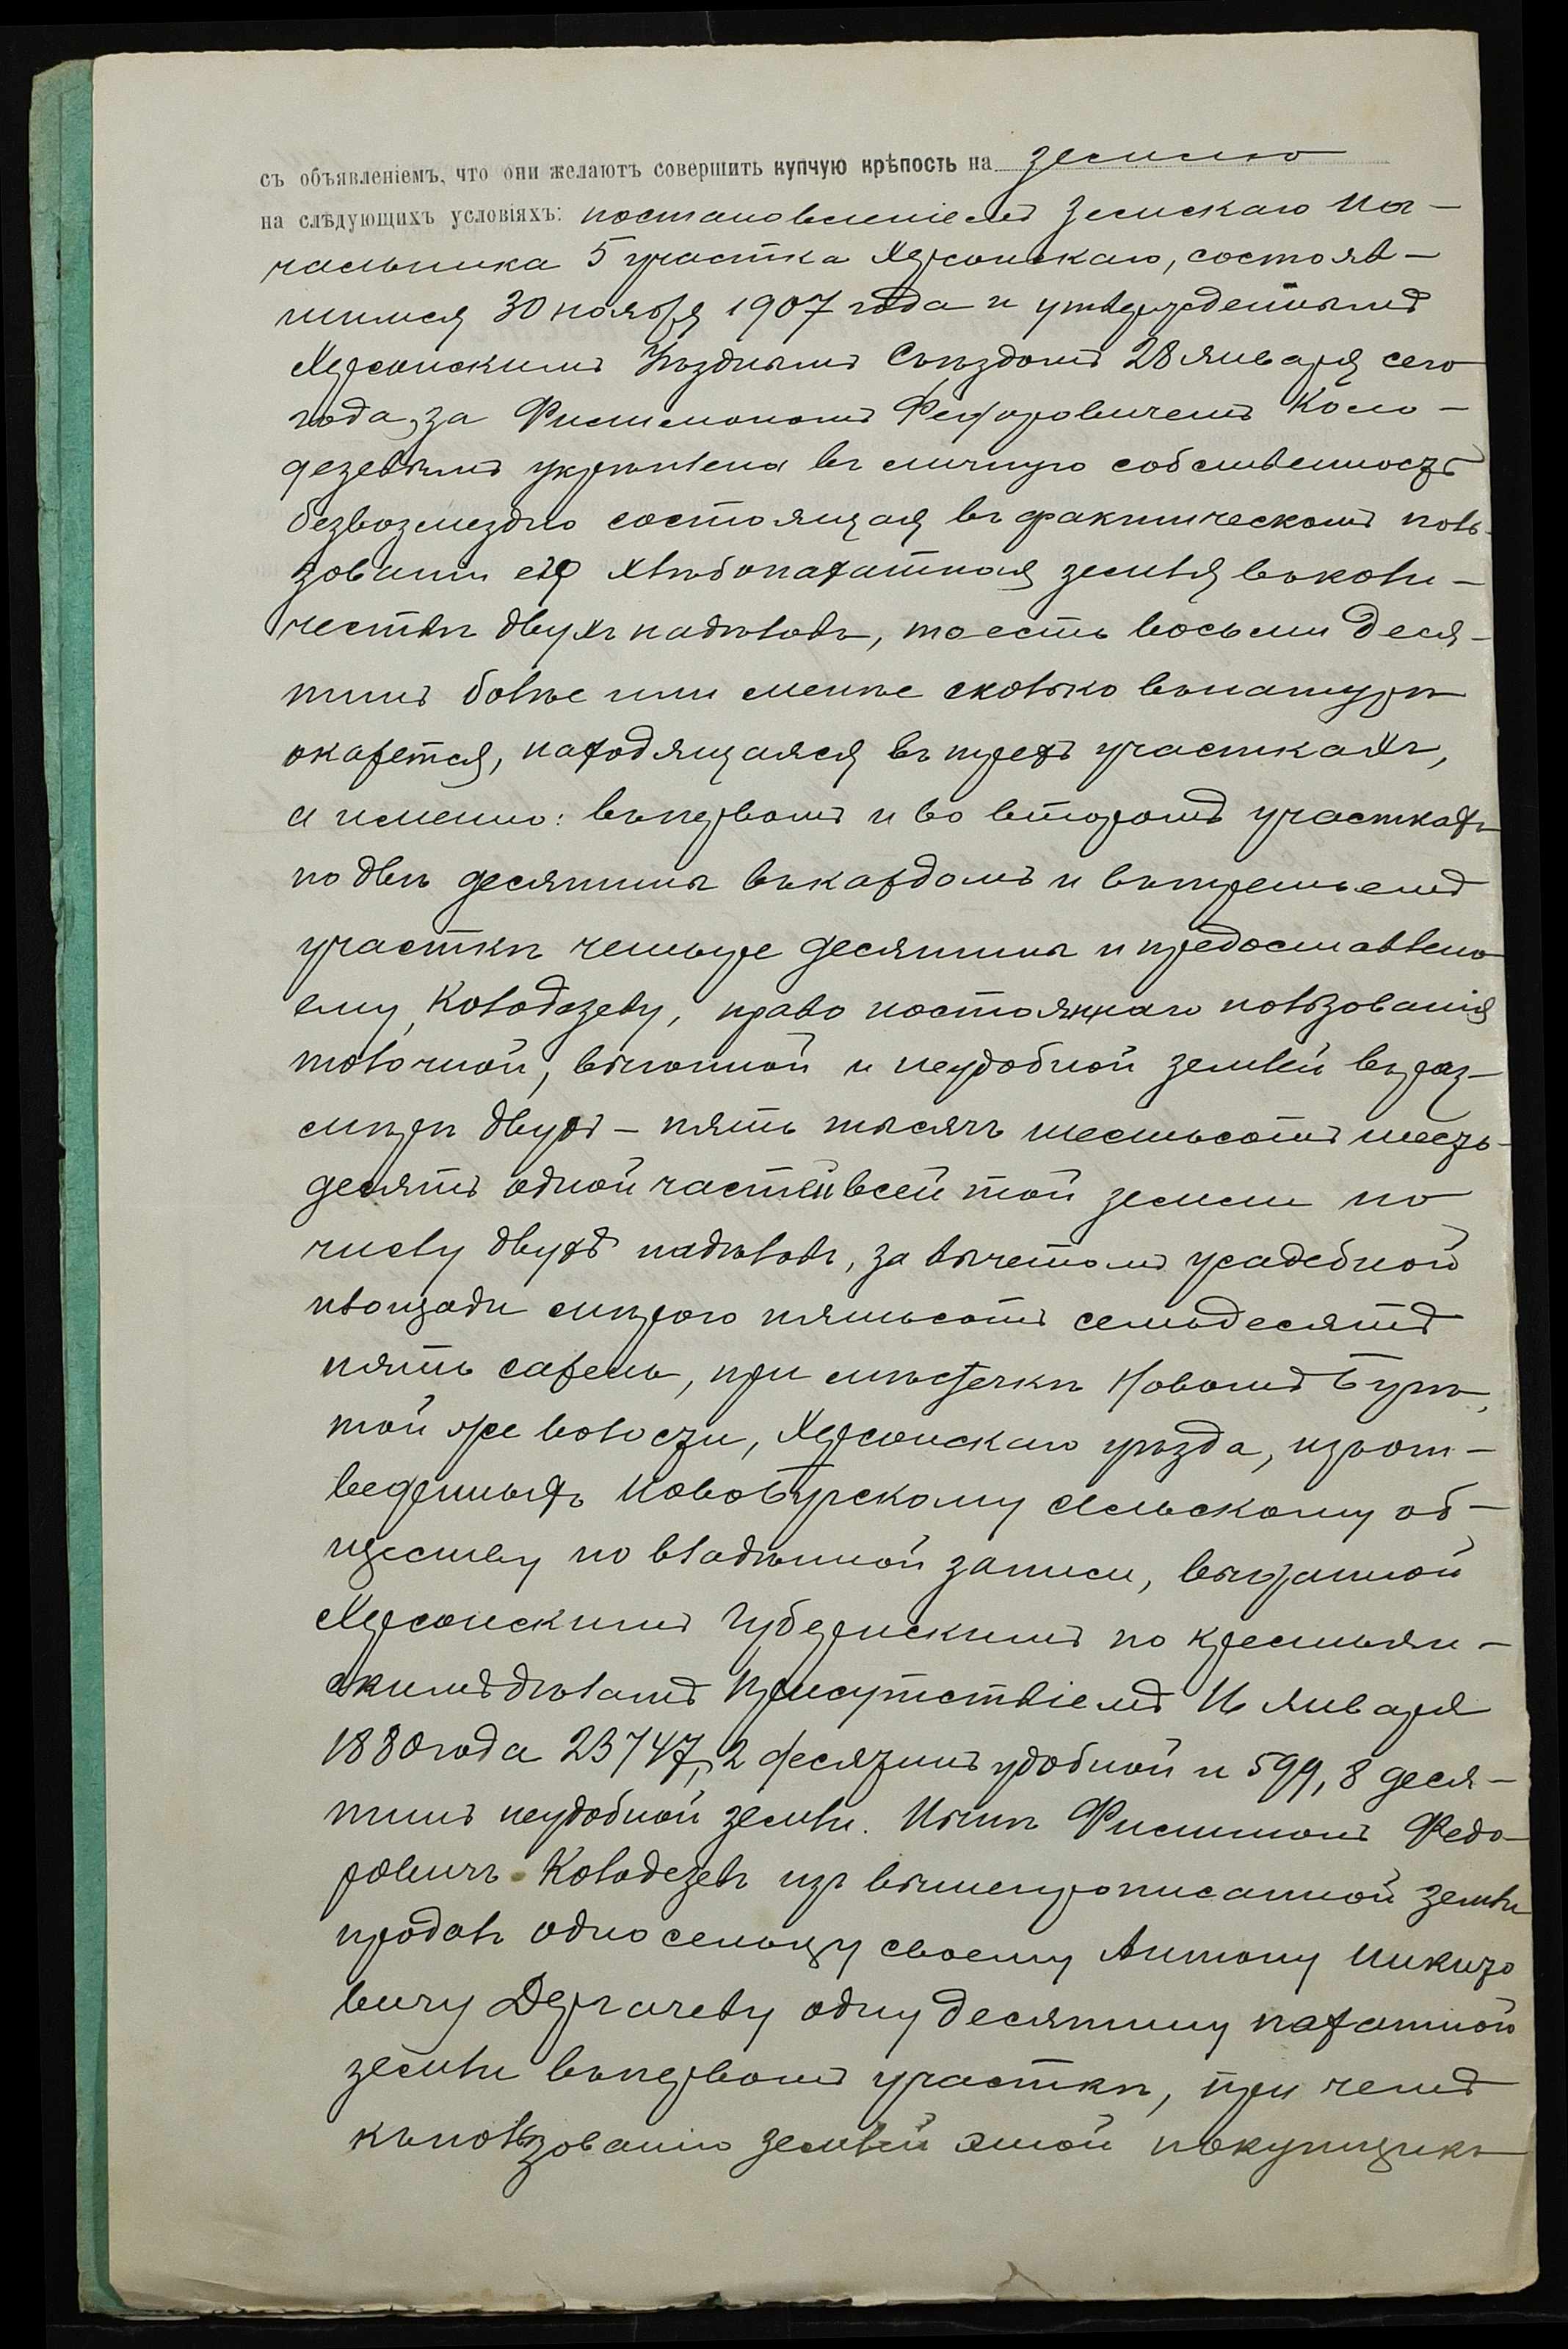 съ объявленіемъ, что они желаютъ совершить купчую крѣпость на землю
на слѣдующихъ условіяхъ: постановленіемъ Земскаго На-
чальника 5 участка Херсонскаго, состояв-
шимся 30 ноября 1907 года и утвержденнымъ
Херсонскимъ Уѣзднымъ Съѣздомъ 28 января сего
года, за Филимономъ Федоровичемъ Коло-
дезевымъ укрѣплена въ личную собственность
безвозмездно состоящая въ фактическомъ поль-
зованіи его хлѣбопахатная земля въ коли-
чествѣ двухъ надѣловъ, то есть восьми деся-
тинъ болѣе или менѣе сколько въ натурѣ
окажется, находящаяся въ трехъ участкахъ,
а именно: въ первомъ и во второмъ участкахъ
по двѣ десятины въ каждомъ и въ третьемъ
участкѣ четыре десятины и предоставлено
ему, Колодезеву, право постояннаго пользованія
толочной, выгонной и неудобной землей въ раз-
мѣрѣ двухъ - пять тысячъ шестьсотъ шесть-
десятъ одной частей всей той земли по
числу двухъ надѣловъ, за вычетомъ усадебной
площади мѣрою пятьсотъ семьдесятъ
пять сажень, при мѣстечкѣ Новомъ Бугѣ,
той же волости, Херсонскаго уѣзда, изъ от-
веденныхъ Новобугскому сельскому об-
ществу по владѣнной записи, выданной
Херсонскимъ Губернскимъ по крестьян-
скимъ дѣламъ Присутствіемъ 16 января
1880 года 23747,2 десятинъ удобной и 599,8 деся-
тинъ неудобной земли. Нынѣ Филимонъ Федо-
ровичъ Колодезевъ изъ вышепрописанной земли
продалъ односельцу своему Антону Никито
вичу Дергачеву одну десятину пахатной
земли въ первомъ участкѣ, при чемъ
къ пользованію землей этой покупщикъ